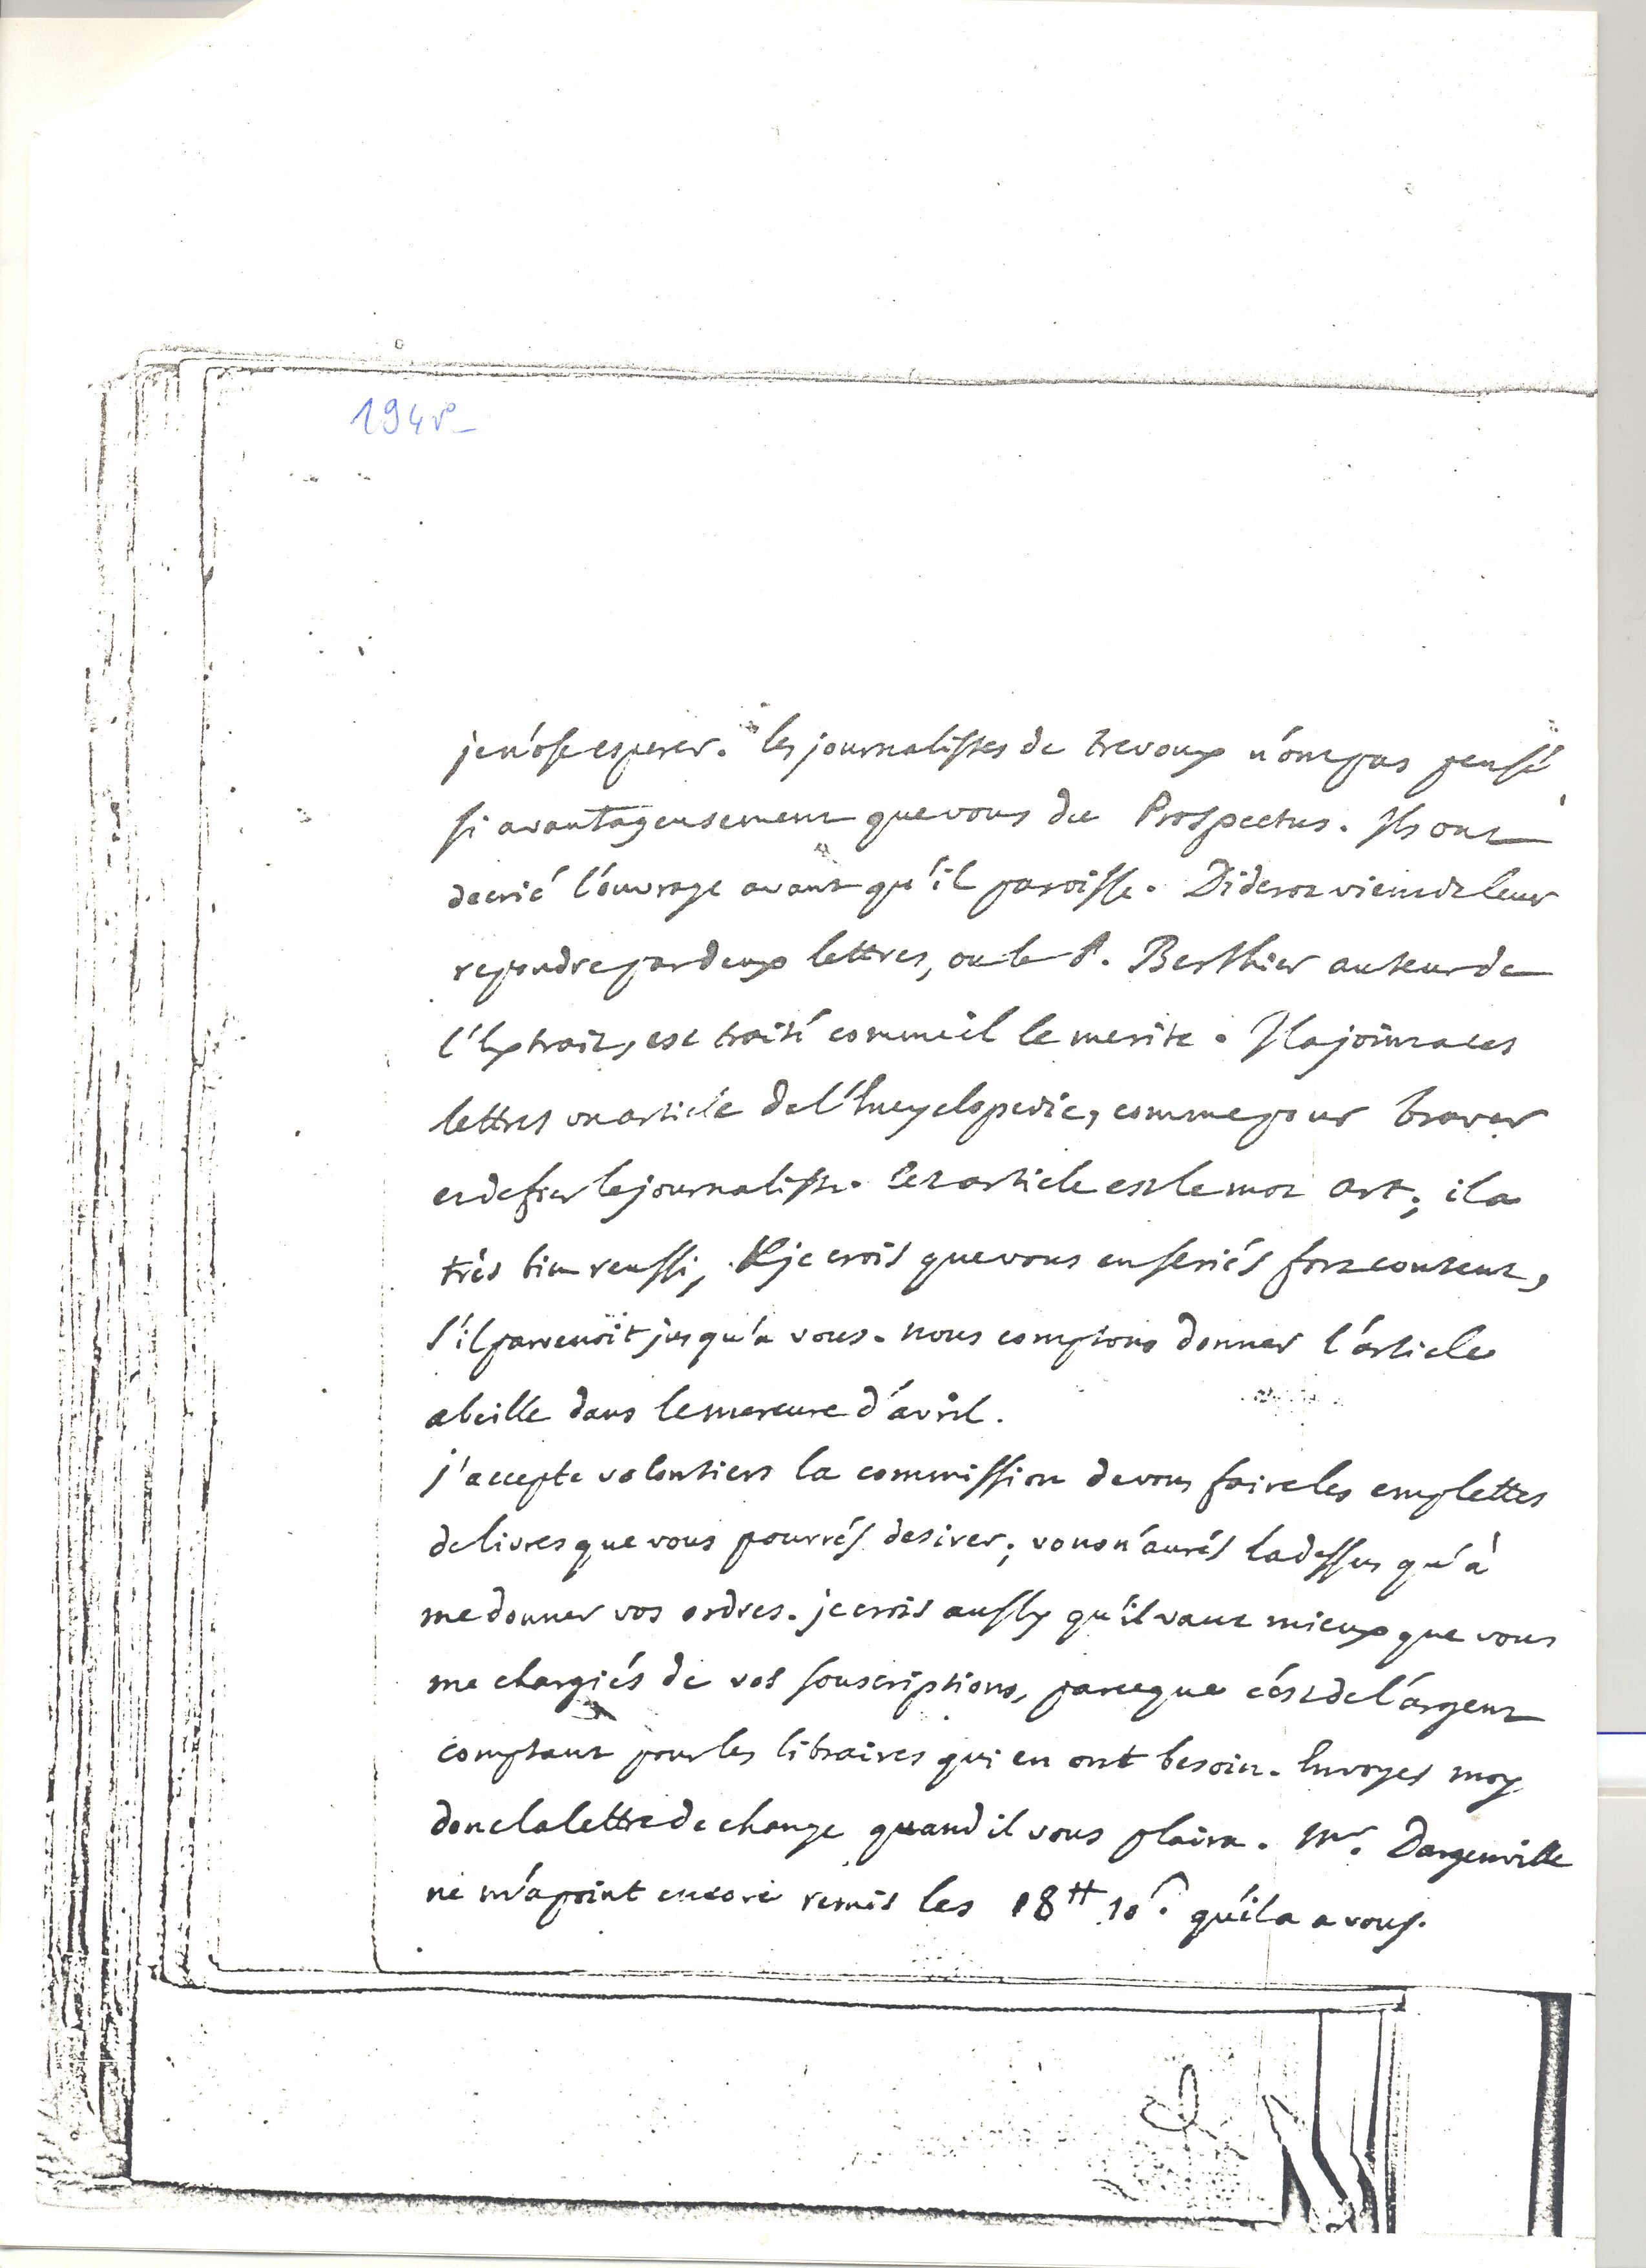 194 v°
je n'ose esperer. les journalistes de trevoux n'ont pas pensé
si avantageusement que vous du Prospectus. Ils ont
decrié l'ouvrage avant qu'il paroisse. Diderot vient de leur
repondre par deux lettres, ou le P. Berthier auteur de
l'Extrait, est traité comme il le merite. Il a joint a ces
lettres un article de l'Encyclopedie, comme pour braver
et defier le journaliste. Cet article est le mot art; il a
très bien reussi, & je crois que vous en seriés fort content,
s'il parvenoit jusqu'a vous. nous comptons donner l'article
abeille dans le mercure d'avril.
j'accepte volontiers la commission de vous faire les emplettes
de livres que vous pourrés desirer; vous n'aurés la dessus qu'à
me donner vos ordres. je crois aussy qu'il vaut mieux que vous
me chargiés de vos souscriptions, parceque c'est de l'argent
comptant pour les libraires qui en ont besoin. Envoyes moy
donc la lettre de change quand il vous plaira. Mr. Dargenville
ne m'a point encore remis les 18tt 10s. qu'il a a vous.